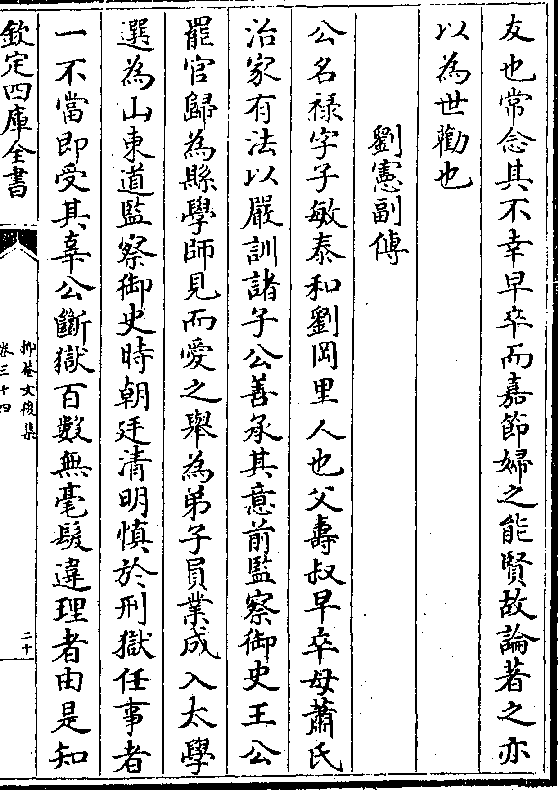 友也常念其不幸早卒而嘉節婦之能賢故論著之亦
以為世勸也
劉憲副傳
公名祿字子敏泰和劉岡里人也父壽叔早卒母蕭氏
治家有法以嚴訓諸子公善承其意前監察御史王公
罷官歸為縣學師見而愛之舉為弟子員業成入太學
選為山東道監察御史時朝廷清明慎於刑獄任事者
一不當即受其辜公斷獄百數無毫髮違理者由是知
欽定四庫全書
抑菴文後集
卷三十四
二十